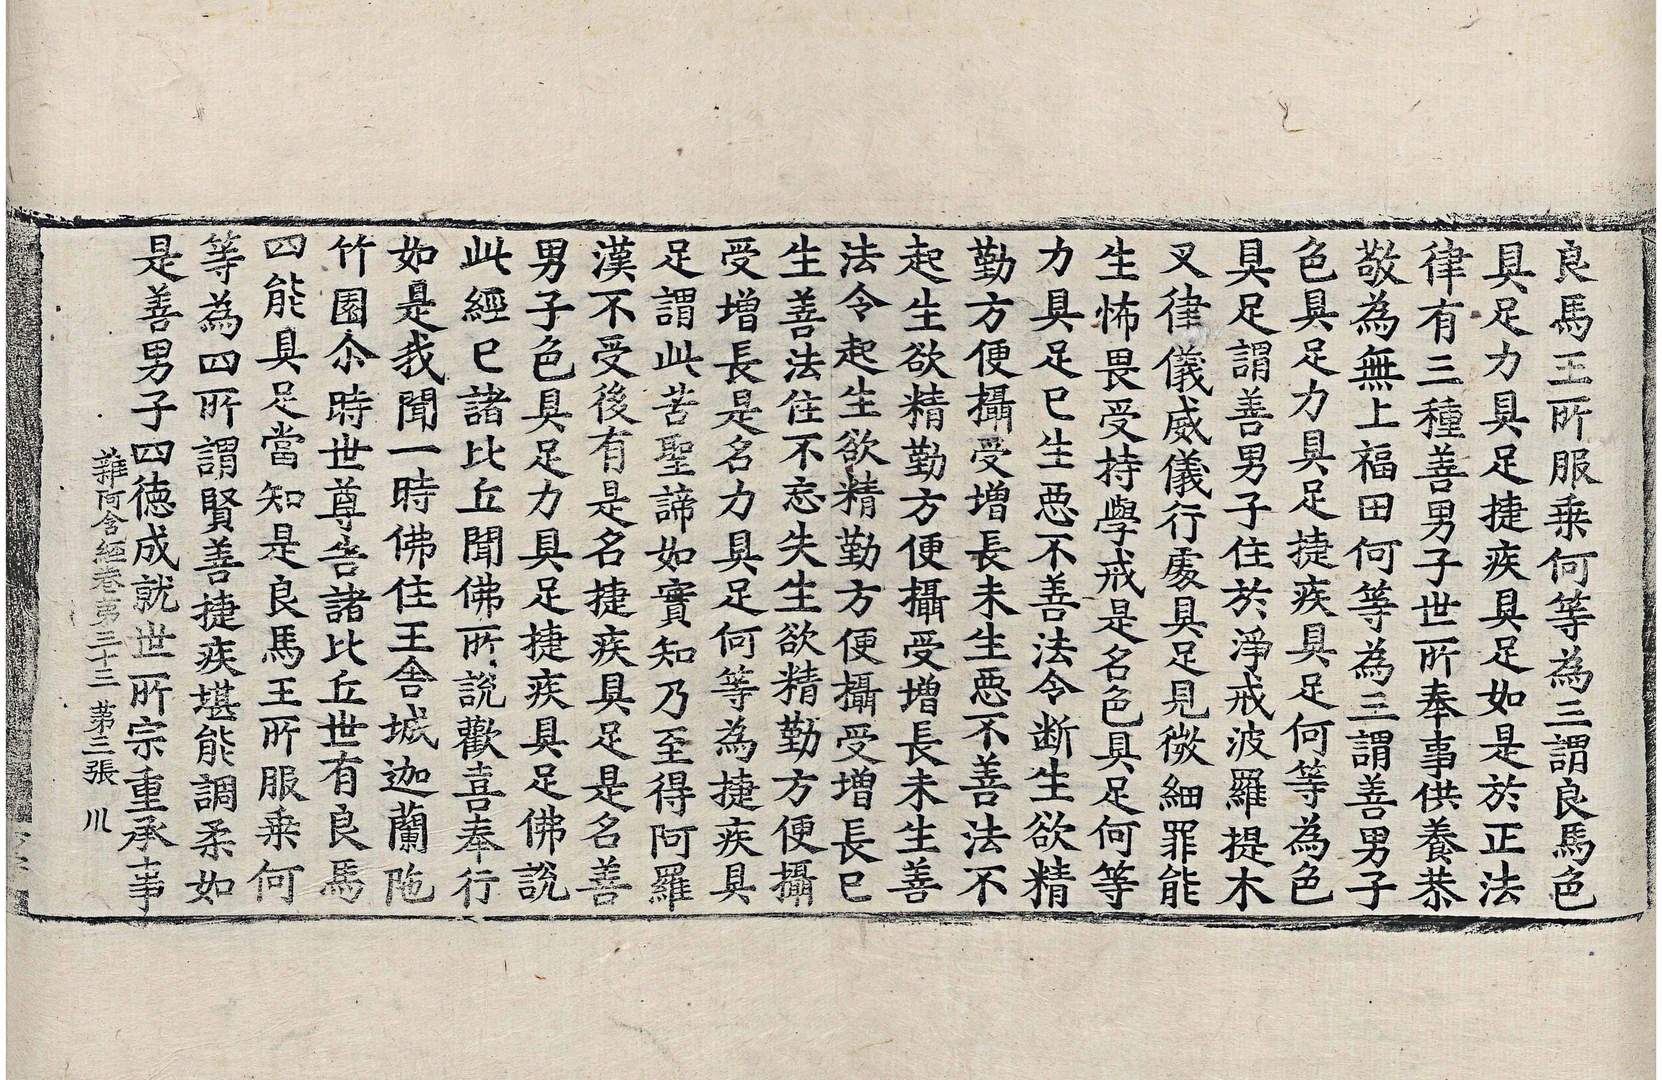 良馬王所服乗何等為三謂良馬色
具足力具足捷疾具足如是於正法
律有三種善男子世所奉事供養恭
敬為無上福田何等為三謂善男子
色具足力具足捷疾具足何等為色
具足謂善男子住於淨戒波羅提木
叉律儀威儀行處具足見微細罪能
生怖畏受持學戒是名色具足何等
力具足已生惡不善法令断生欲精
勤方便攝受增長未生惡不善法不
起生欲精勤方便攝受增長未生善
法令起生欲精勤方便攝受增長已
生善法住不忘失生欲精勤方便攝
受增長是名力具足何等為捷疾具
足謂此苦聖諦如實知乃至得阿羅
漢不受後有是名捷疾具足是名善
男子色具足力具足捷疾具足佛說
此經已諸比丘聞佛所說歡喜奉行
如是我聞一時佛住王舍城迦蘭陁
竹園尒時世尊告諸比丘世有良馬
四能具足當知是良馬王所服乗何
等為四所謂賢善捷疾堪能調柔如
是善男子四德成就世所宗重承事
雜阿含經卷第三十三 第三張 川